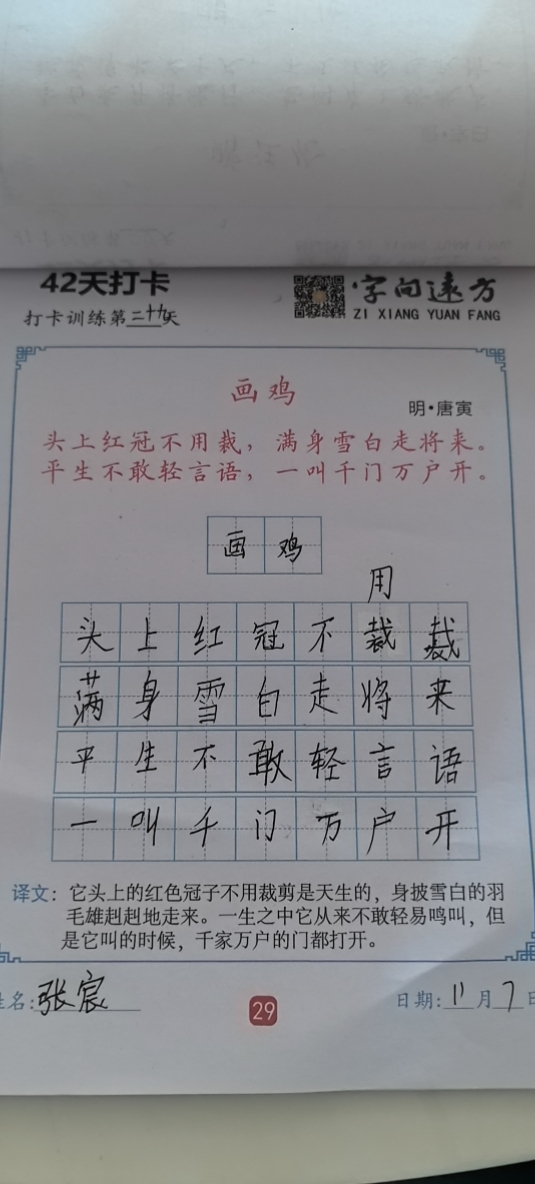 42天打卡
字向远方
打卡训练第二十九天
ZI XIANG YUAN FANG
画鸡
明·唐寅
头上红冠不用裁，满身雪白走将来。
平生不敢轻言语，一叫千门万户开。
画鸡
用
头上红冠不裁裁
满身雪白走将来
平生不敢轻言语
一叫千门万户开
译文：它头上的红色冠子不用裁剪是天生的，身披雪白的羽
毛雄赳赳地走来。一生之中它从来不敢轻易鸣叫，但
是它叫的时候，千家万户的门都打开。
姓名：张宸
29
日期：11月7日